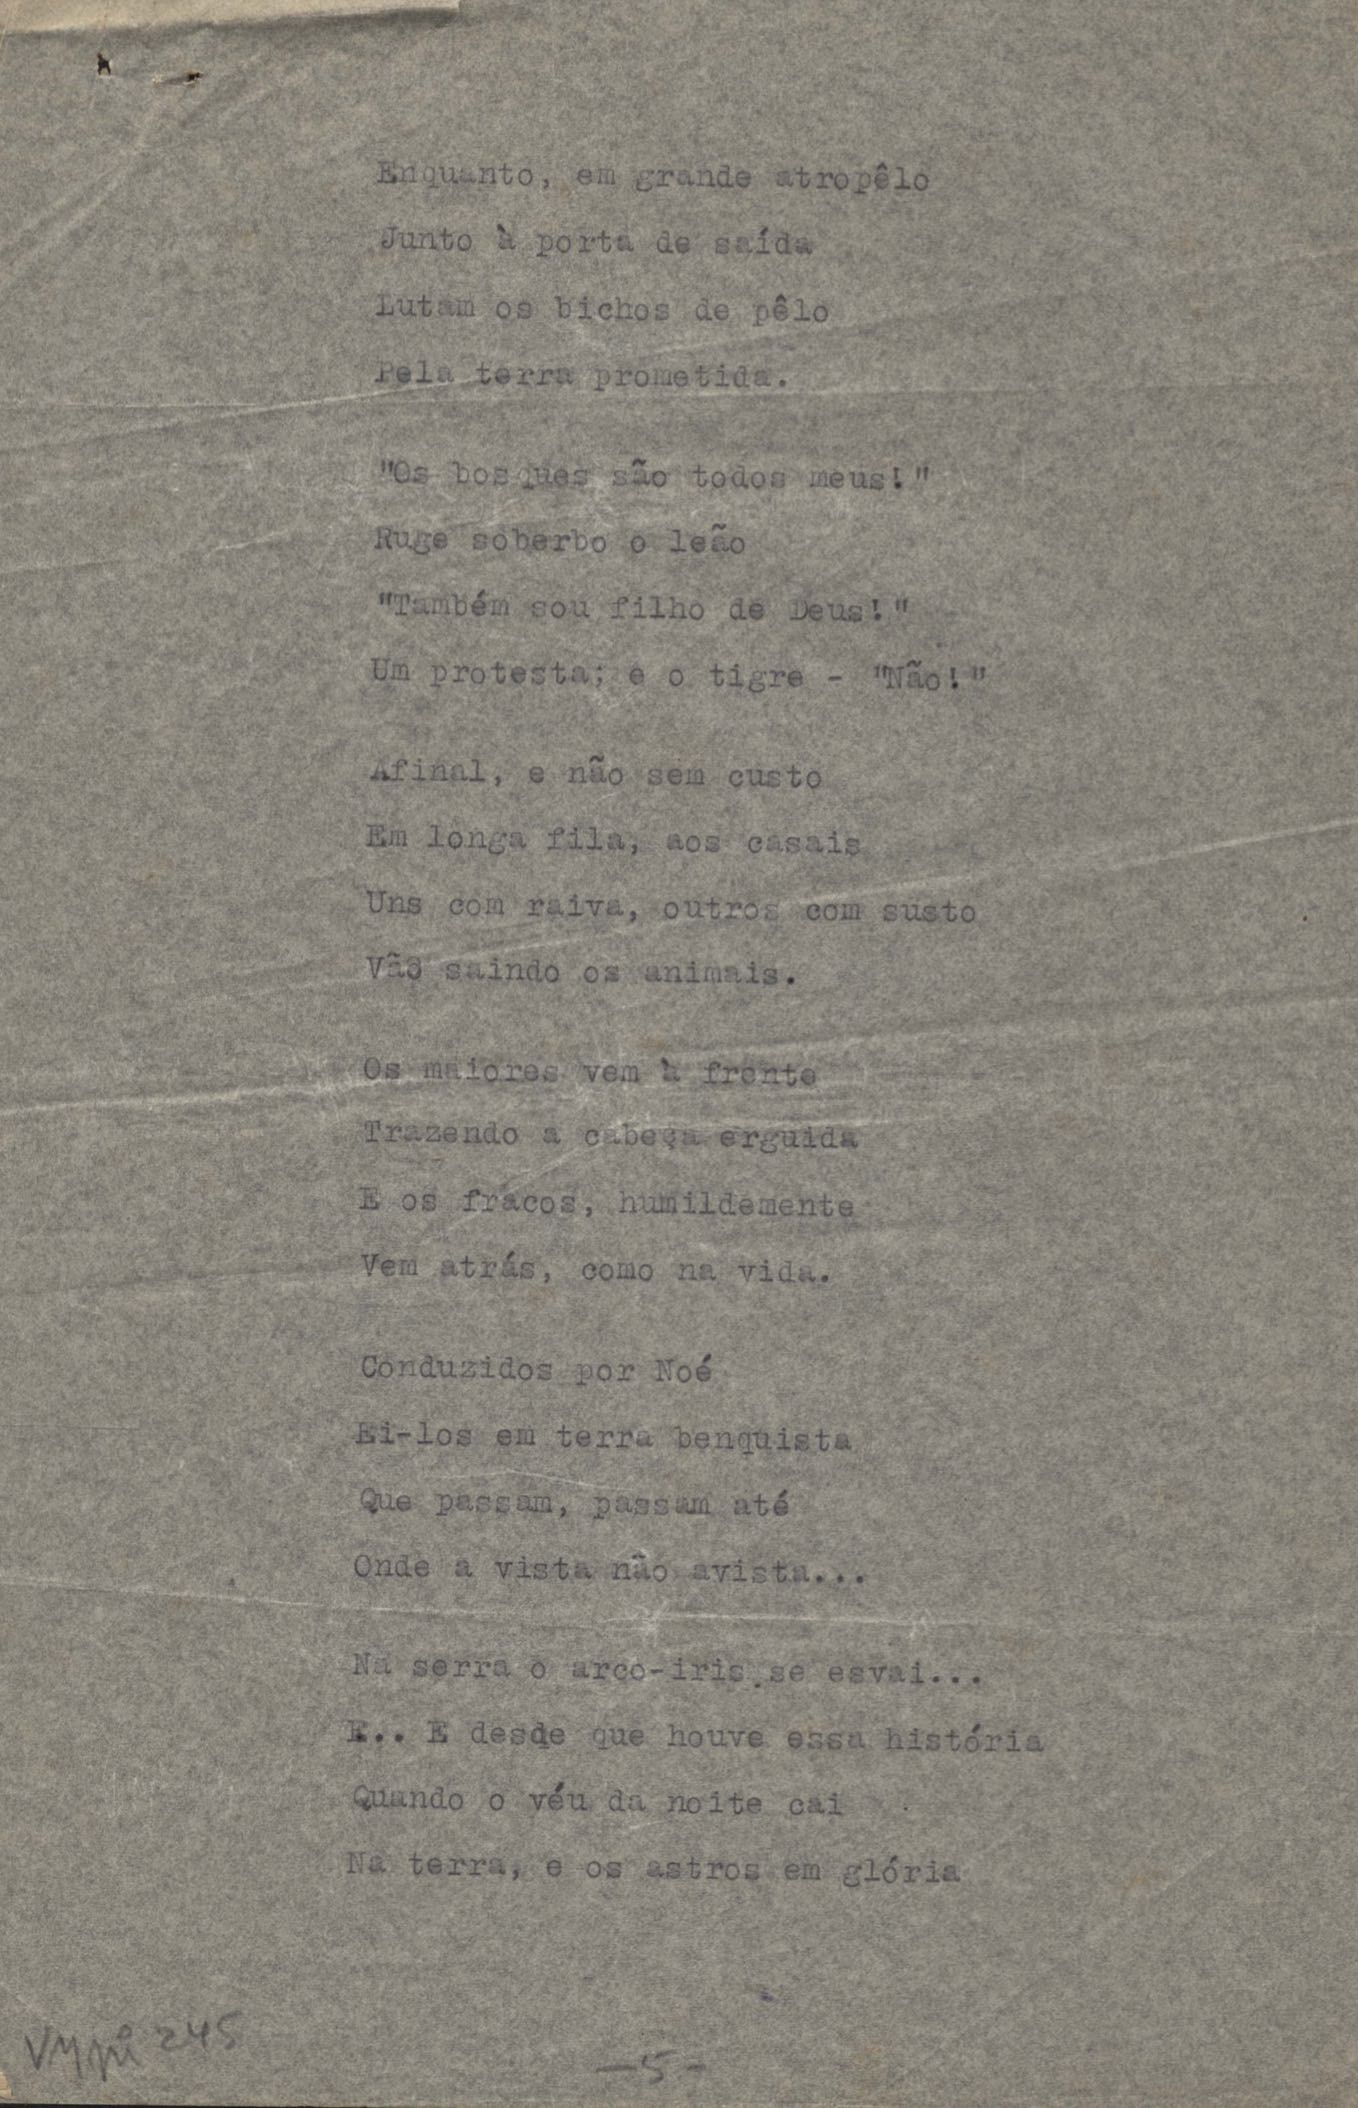 Enquanto, em grande atropêlo
Junto à porta de saída
Lutam os bichos de pêlo
Pela terra prometida.
"Os bosques são todos meus!"
Ruge soberbo o leão
"Também sou filho de Deus!"
Um protesta; e o tigre - "Não!"
Afinal, e não sem custo
Em longa fila, aos casais
Uns com raiva, outros com susto
Vão saindo os animais.
Os maiores vem à frente
Trazendo a cabeça erguida
E os fracos, humildemente
Vem atrás, como na vida.
Conduzidos por Noé
Ei-los em terra benquista
Que passam, passam até
Onde a vista não avista...
Na serra o arco-iris se esvai...
E.. E desde que houve essa história
Quando o véu da noite cai
Na terra, e os astros em glória
245
-5-